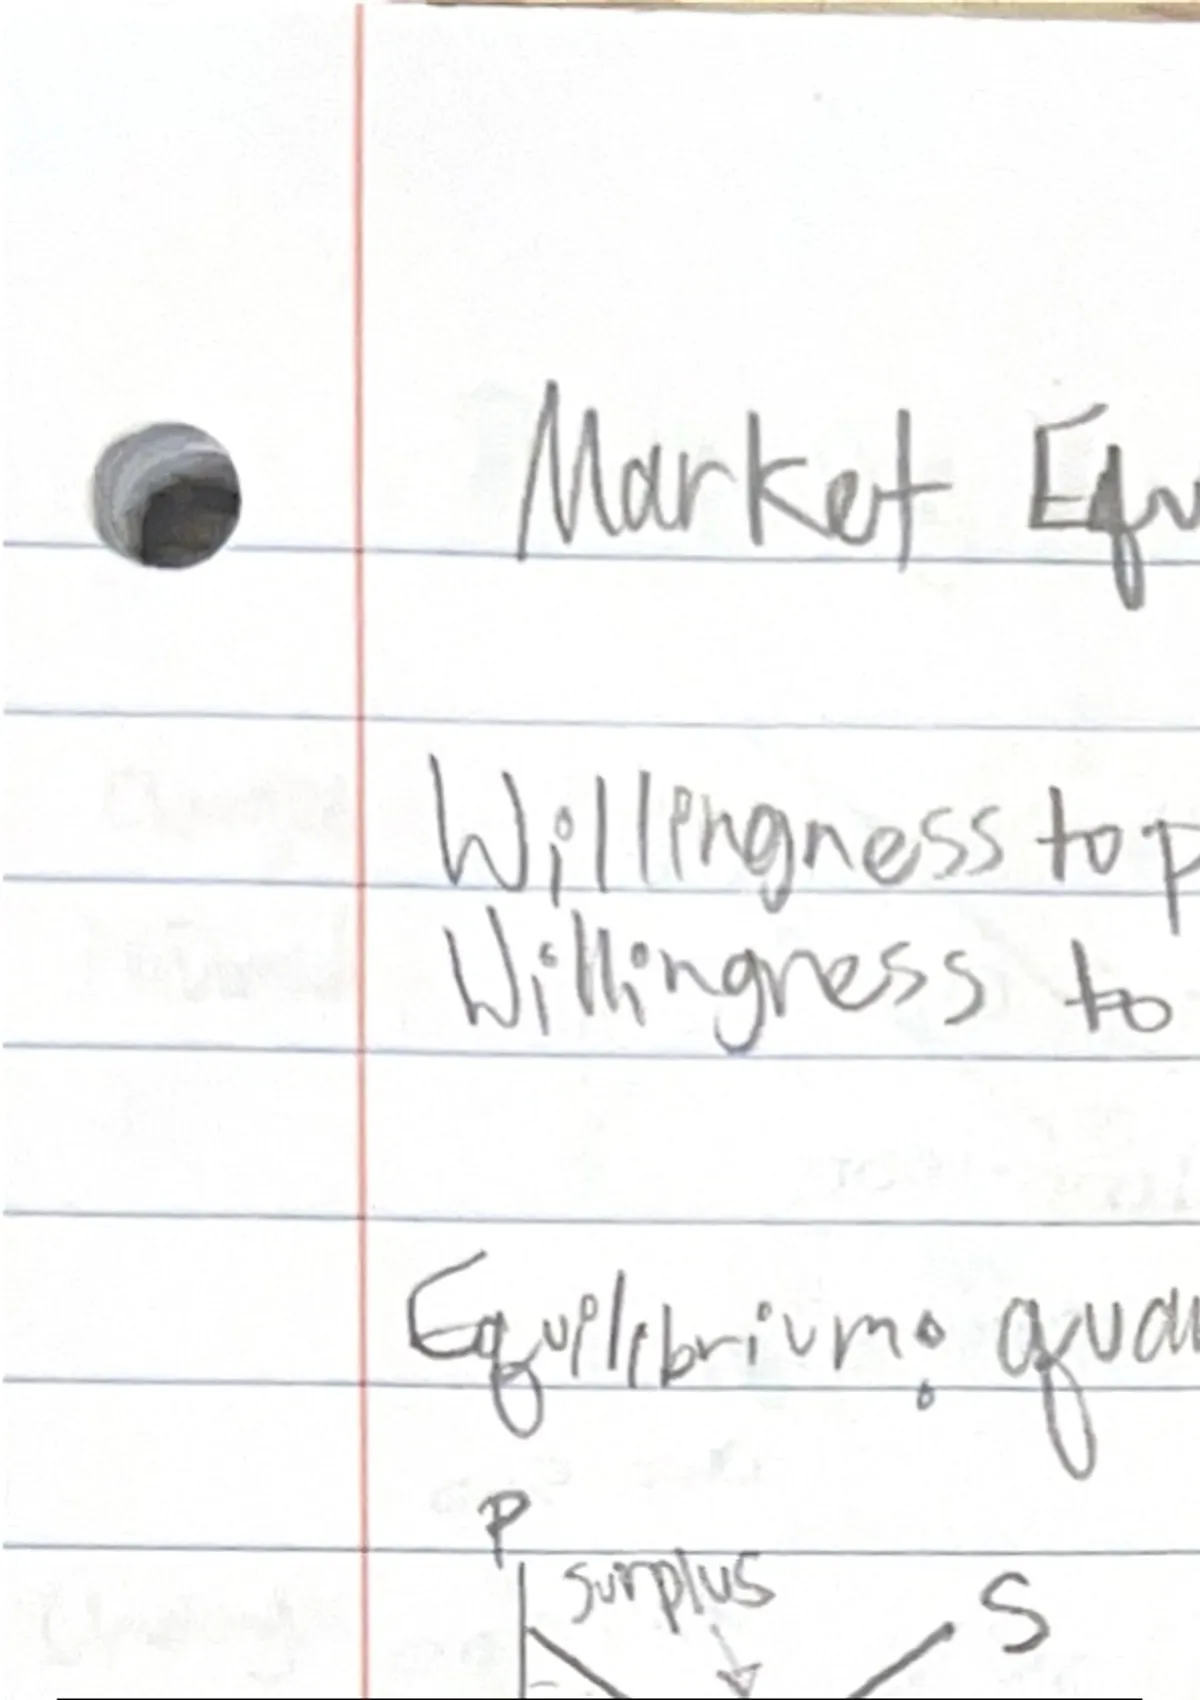 Market Equ
Willingness to p
Willingness to
Equilibrium: qua
P
surplus
S